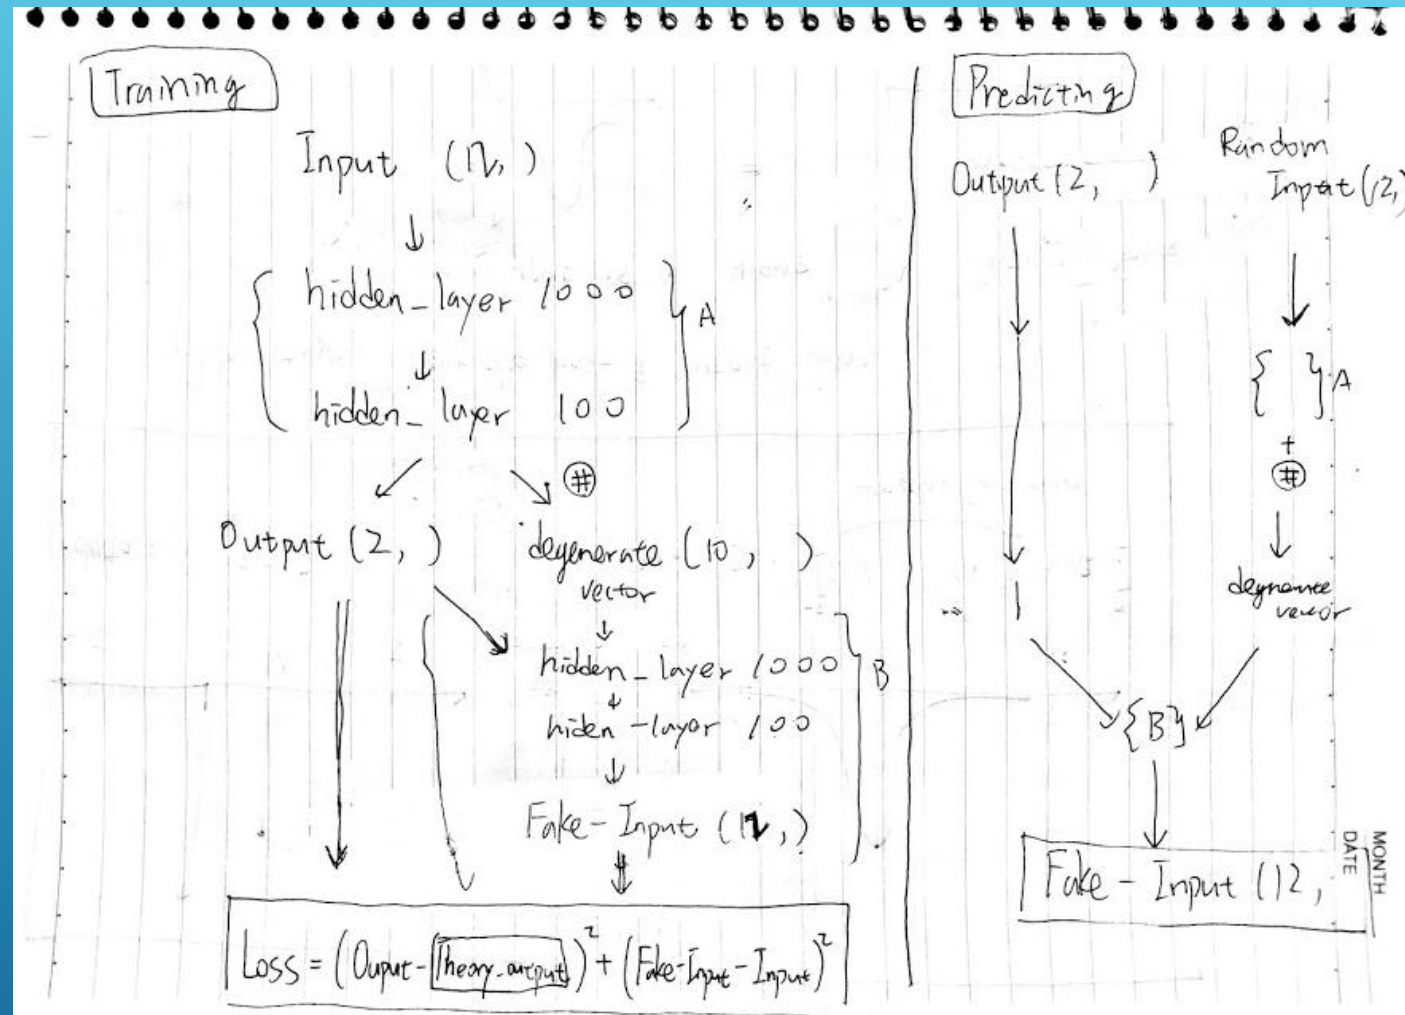 Training
Input (12, )
↓
hidden_layer 1000
↓
hidden_layer 100
A
#
Output (2, )
degenerate (10, )
vector
↓
hidden_layer 1000
↓
hiden-layer 100
B
↓
Fake-Input (12,)
Loss = (Ouput-Theory_output)² + (Fake-Input-Input)²
Predicting
Output (2, )
Random
Input (12,)
{ } A
+
#
↓
vector
{B}
Fake-Input (12,
MONTH
DATE